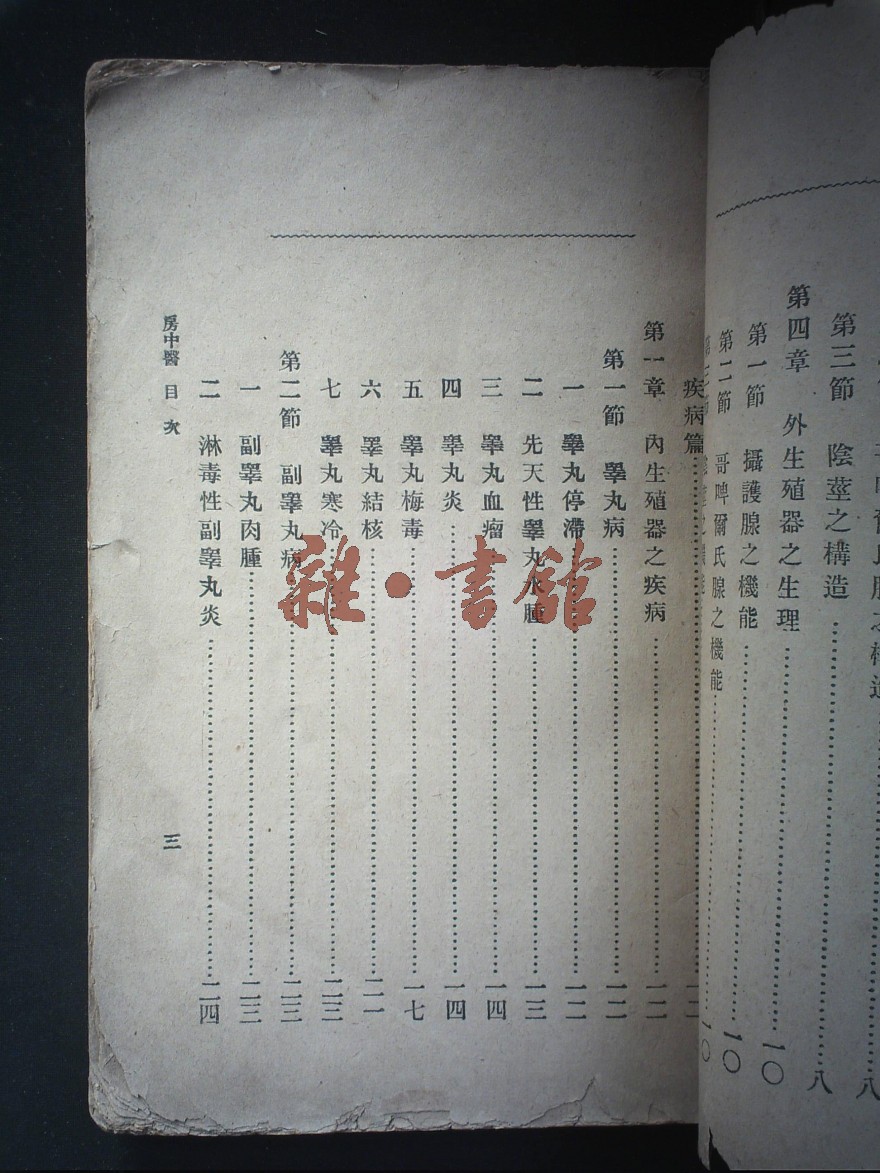 爾氏腺之構造……八
第三節 陰莖之構造……八
第四章 外生殖器之生理……一〇
第一節 攝護腺之機能……一〇
第二節 哥啤爾氏腺之機能……一〇
疾病篇……一二
第一章 內生殖器之疾病……一二
第一節 睾丸病……一二
一 睾丸停滯……一二
二 先天性睾丸水腫……一三
三 睾丸血瘤……一四
四 睾丸炎……一四
五 睾丸梅毒……一七
六 睾丸結核……二一
七 睾丸寒冷……二三
第二節 副睾丸病……二三
一 副睾丸肉腫……二三
二 淋毒性副睾丸炎……二四
房中醫 目次 三
雜·書館